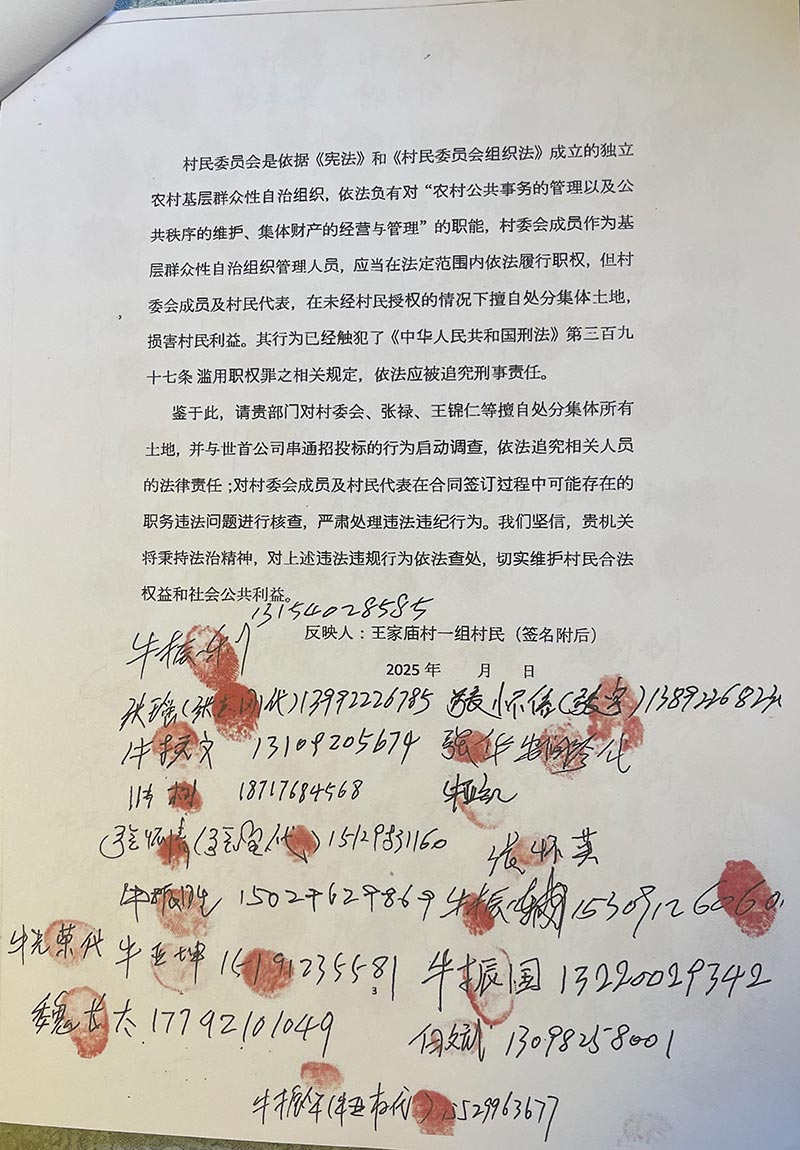 村民委员会是依据《宪法》和《村民委员会组织法》成立的独立
农村基层群众性自治组织，依法负有对“农村公共事务的管理以及公
共秩序的维护、集体财产的经营与管理”的职能，村委会成员作为基
层群众性自治组织管理人员，应当在法定范围内依法履行职权，但村
委会成员及村民代表，在未经村民授权的情况下擅自处分集体土地，
损害村民利益。其行为已经触犯了《中华人民共和国刑法》第三百九
十七条 滥用职权罪之相关规定，依法应被追究刑事责任。
鉴于此，请贵部门对村委会、张禄、王锦仁等擅自处分集体所有
土地，并与世首公司串通招投标的行为启动调查，依法追究相关人员
的法律责任;对村委会成员及村民代表在合同签订过程中可能存在的
职务违法问题进行核查，严肃处理违法违纪行为。我们坚信，贵机关
将秉持法治精神，对上述违法违规行为依法查处，切实维护村民合法
权益和社会公共利益。
13154028585
反映人：王家庙村一组村民（签名附后）
牛振
2025 年 月 日
13992226785
13109205674
18717684568
张怀英
牛振 15309126060
牛光荣代 牛亚坤 15191235581
3
牛振国 13220029342
魏长太 17792101049
白文斌 13098258001
牛振 15529963677